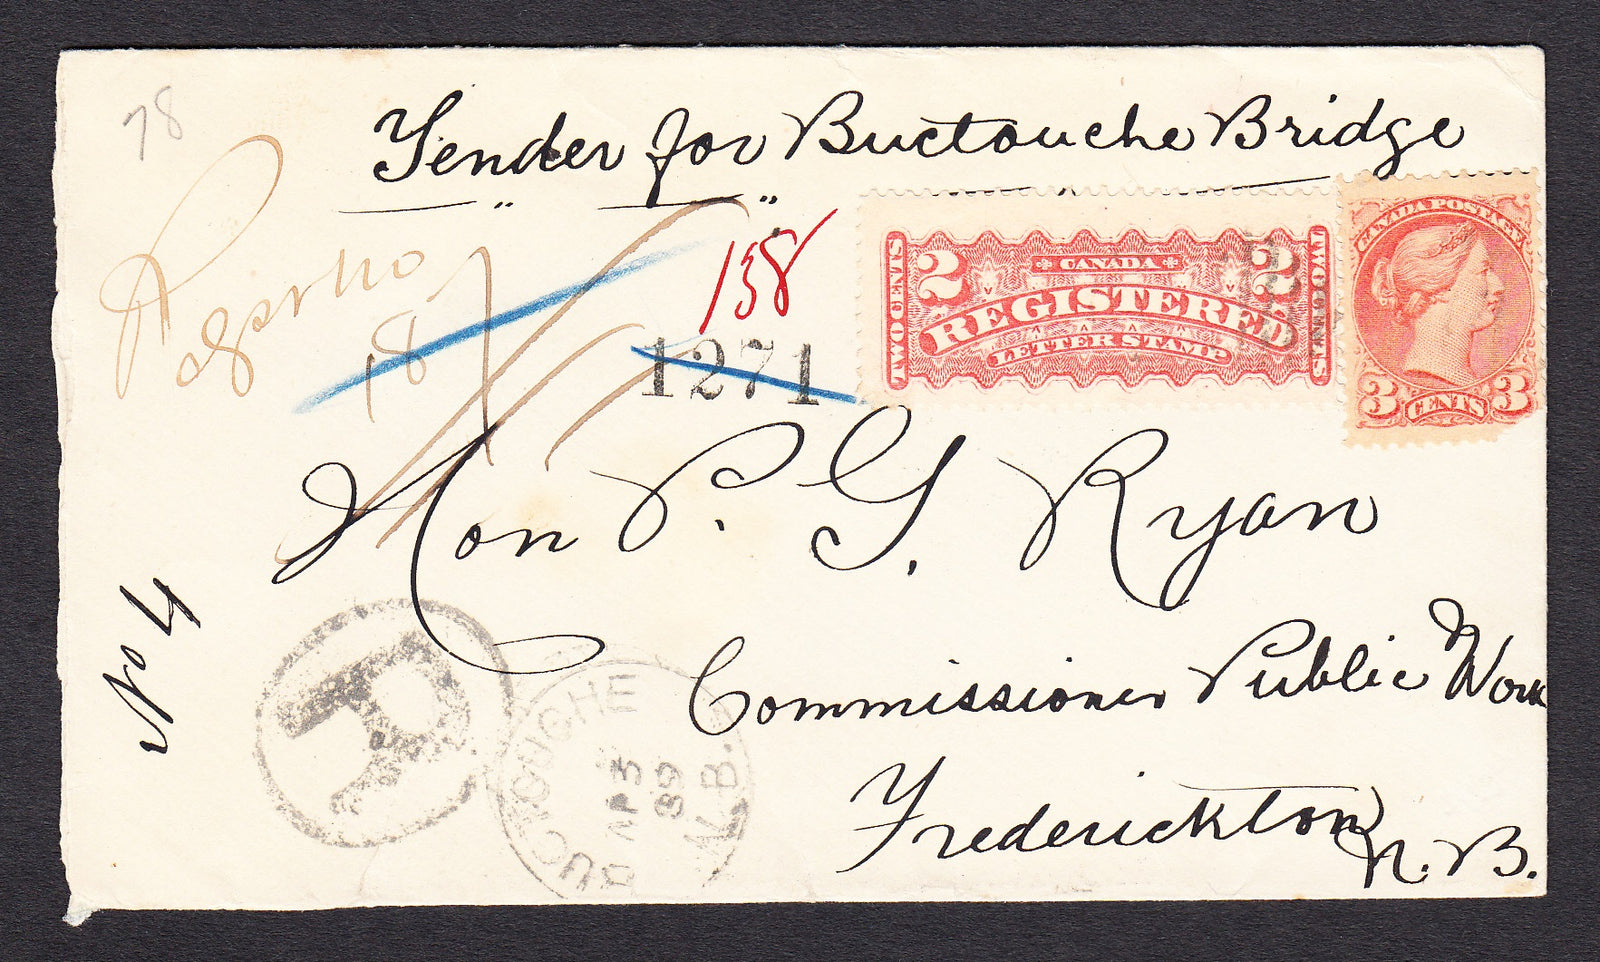 78
Tender for Buctouche Bridge
138
1271
TWO CENTS 2 CANADA 2 TWO CENTS
REGISTERED
LETTER STAMP
CANADA POSTAGE
3 CENTS 3
18
Hon P. G. Ryan
Commissioner Public Work
Frederickton N. B.
No 4
R
BUCTOUCHE
AP 5
89
N.B.